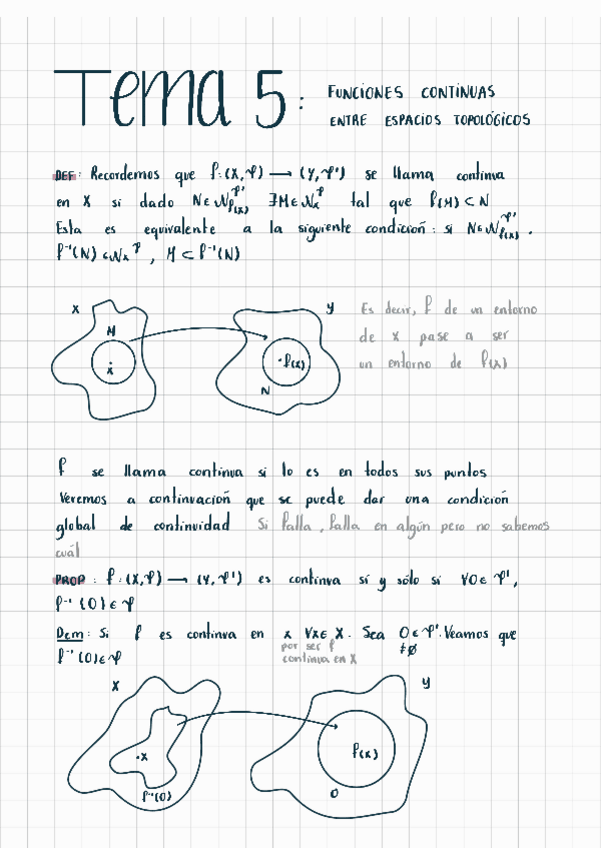 Tema 5:
FUNCIONES CONTINUAS
ENTRE ESPACIOS TOPOLÓGICOS
DEF: Recordemos que f:(X,𝒯) ⟶ (Y,𝒯') se llama continua
en X si dado N∈𝒩_{f(x)}^{𝒯'} ∃M∈𝒩_x^{𝒯} tal que f(M) ⊂ N
Esta es equivalente a la siguiente condición: si N∈𝒩_{f(x)}^{𝒯'}.
f⁻¹(N) ∈ 𝒩_x^{𝒯}, M ⊂ f⁻¹(N)
X
M
x
Y
f(x)
N
Es decir, f de un entorno
de x pase a ser
un entorno de f(x)
f se llama continua si lo es en todos sus puntos
Veremos a continuación que se puede dar una condición
global de continuidad Si falla, falla en algún pero no sabemos
cuál
PROP: f:(X,𝒯) ⟶ (Y,𝒯') es continua sí y sólo si ∀O∈𝒯',
f⁻¹(O)∈𝒯
Dem: Si f es continua en x ∀x∈X. Sea O∈𝒯'. Veamos que
≠∅
f⁻¹(O)∈𝒯
por ser f
continua en X
X
x
f⁻¹(O)
Y
f(x)
O